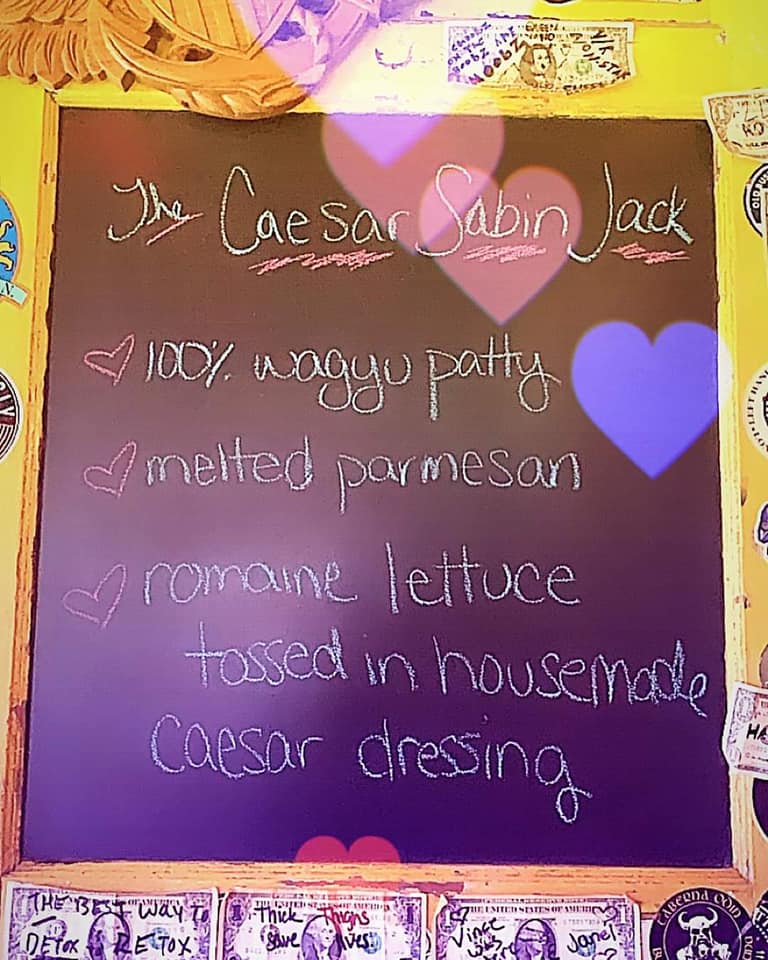 NOOBZ
The Caesar Sabin Jack
100% wagyu patty
melted parmesan
romaine lettuce
tossed in housemade
caesar dressing
THE BEST WAY TO
DETOX is RETOX
Thick Thighs
save lives.
THE UNITED STATES OF AMERICA
Vince
was
Janel